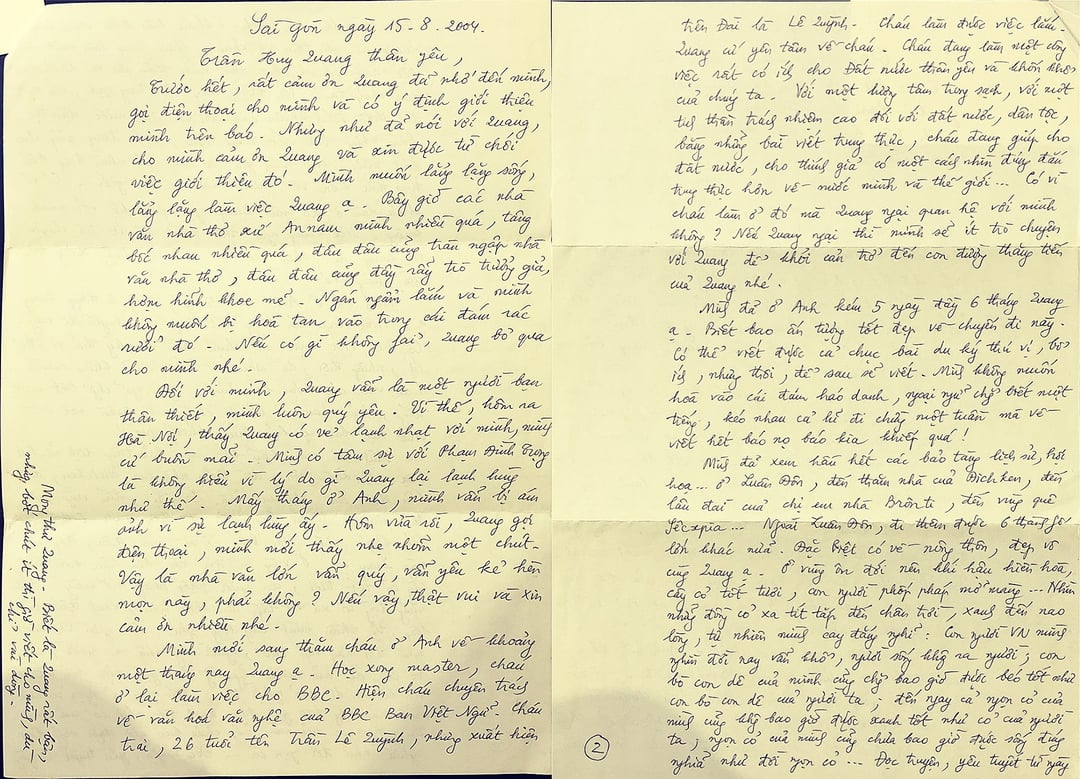 Sài gòn ngày 15-8-2004.
Trần Huy Quang thân yêu,
Trước hết, rất cảm ơn Quang đã nhớ đến mình,
gọi điện thoại cho mình và có ý định giới thiệu
mình trên báo. Nhưng như đã nói với Quang,
cho mình cảm ơn Quang và xin được từ chối
việc giới thiệu đó. Mình muốn lẳng lặng sống,
lẳng lặng làm việc Quang ạ. Bây giờ các nhà
văn nhà thơ xứ Annam mình nhiều quá, tâng
bốc nhau nhiều quá, đâu đâu cũng tràn ngập nhà
văn nhà thơ, đâu đâu cũng đầy rẫy trò trưởng giả,
hợm hĩnh khoe mẽ. Ngán ngẩm lắm và mình
không muốn bị hoà tan vào trong cái đám rác
rưởi đó. Nếu có gì không fải, Quang bỏ qua
cho mình nhé.
Đối với mình, Quang vẫn là một người bạn
thân thiết, mình luôn quý yêu. Vì thế, hôm ra
Hà Nội, thấy Quang có vẻ lạnh nhạt với mình, mình
cứ buồn mãi. Mình có tâm sự với Phạm Đình Trọng
là không hiểu vì lý do gì Quang lại lạnh lùng
như thế. Mấy tháng ở Anh, mình vẫn bị ám
ảnh vì sự lạnh lùng ấy. Hôm vừa rồi, Quang gọi
điện thoại, mình mới thấy nhẹ nhõm một chút.
Vậy là nhà văn lớn vẫn quý, vẫn yêu kẻ hèn
mọn này, phải không? Nếu vậy, thật vui và xin
cảm ơn nhiều nhé.
Mình mới sang thăm cháu ở Anh về khoảng
một tháng nay Quang ạ. Học xong master, cháu
ở lại làm việc cho BBC. Hiện cháu chuyên trách
về văn hoá văn nghệ của BBC Ban Việt Ngữ. Cháu
trai, 26 tuổi tên Trần Lê Quỳnh, nhưng xuất hiện
Mong thư Quang. Biết là Quang rất bận,
nhưng bớt chút ít thì giờ viết cho mình, dù
chỉ vài dòng.
trên Đài là Lê Quỳnh. Cháu làm được việc lắm.
Quang cứ yên tâm về cháu. Cháu đang làm một công
việc rất có ích cho Đất nước thân yêu và khốn khổ
của chúng ta. Với một lương tâm trong sạch, với một
tinh thần trách nhiệm cao đối với đất nước, dân tộc,
bằng những bài viết trung thực, cháu đang giúp cho
đất nước, cho thính giả có một cái nhìn đúng đắn
trung thực hơn về nước mình và thế giới... Có vì
cháu làm ở đó mà Quang ngại quan hệ với mình
không? Nếu Quang ngại thì mình sẽ ít trò chuyện
với Quang để khỏi cản trở đến con đường thăng tiến
của Quang nhé.
Mình đã ở Anh kém 5 ngày đầy 6 tháng Quang
ạ. Biết bao ấn tượng tốt đẹp về chuyến đi này.
Có thể viết được cả chục bài du ký thú vị, bổ
ích, nhưng thôi, để sau sẽ viết. Mình không muốn
hoà vào cái đám háo danh, ngoại ngữ chỉ biết một
tiếng, kéo nhau cả lũ đi chừng một tuần mà về
viết hết báo nọ báo kia khiếp quá!
Mình đã xem hầu hết các bảo tàng lịch sử, hội
hoạ... ở Luân Đôn, đến thăm nhà của Đichken, đến
lâu đài của chị em nhà Brônti, đến vùng quê
Sêcxpia... Ngoài Luân Đôn, đi thêm được 6 thành fố
lớn khác nữa. Đặc Biệt có về nông thôn, đẹp vô
cùng Quang ạ. Ở vùng ôn đới nên khí hậu hiền hoà,
cây cỏ tốt tươi, con người phốp pháp mỡ màng... Nhìn
những đồng cỏ xa tít tắp đến chân trời, xanh đến nao
lòng, tự nhiên mình cay đắng nghĩ: Con người VN mình
nghìn đời nay vẫn khổ, người sống khg ra người; con
bò con dê của mình cũng chg bao giờ được béo tốt như
con bò con dê của người ta, đến ngay cả ngọn cỏ của
mình cũng khg bao giờ được xanh tốt như cỏ của người
ta; ngọn cỏ của mình cũng chưa bao giờ được sống đúng
nghĩa như đời ngọn cỏ... Đọc truyện, yêu tuyệt từ ngày
2